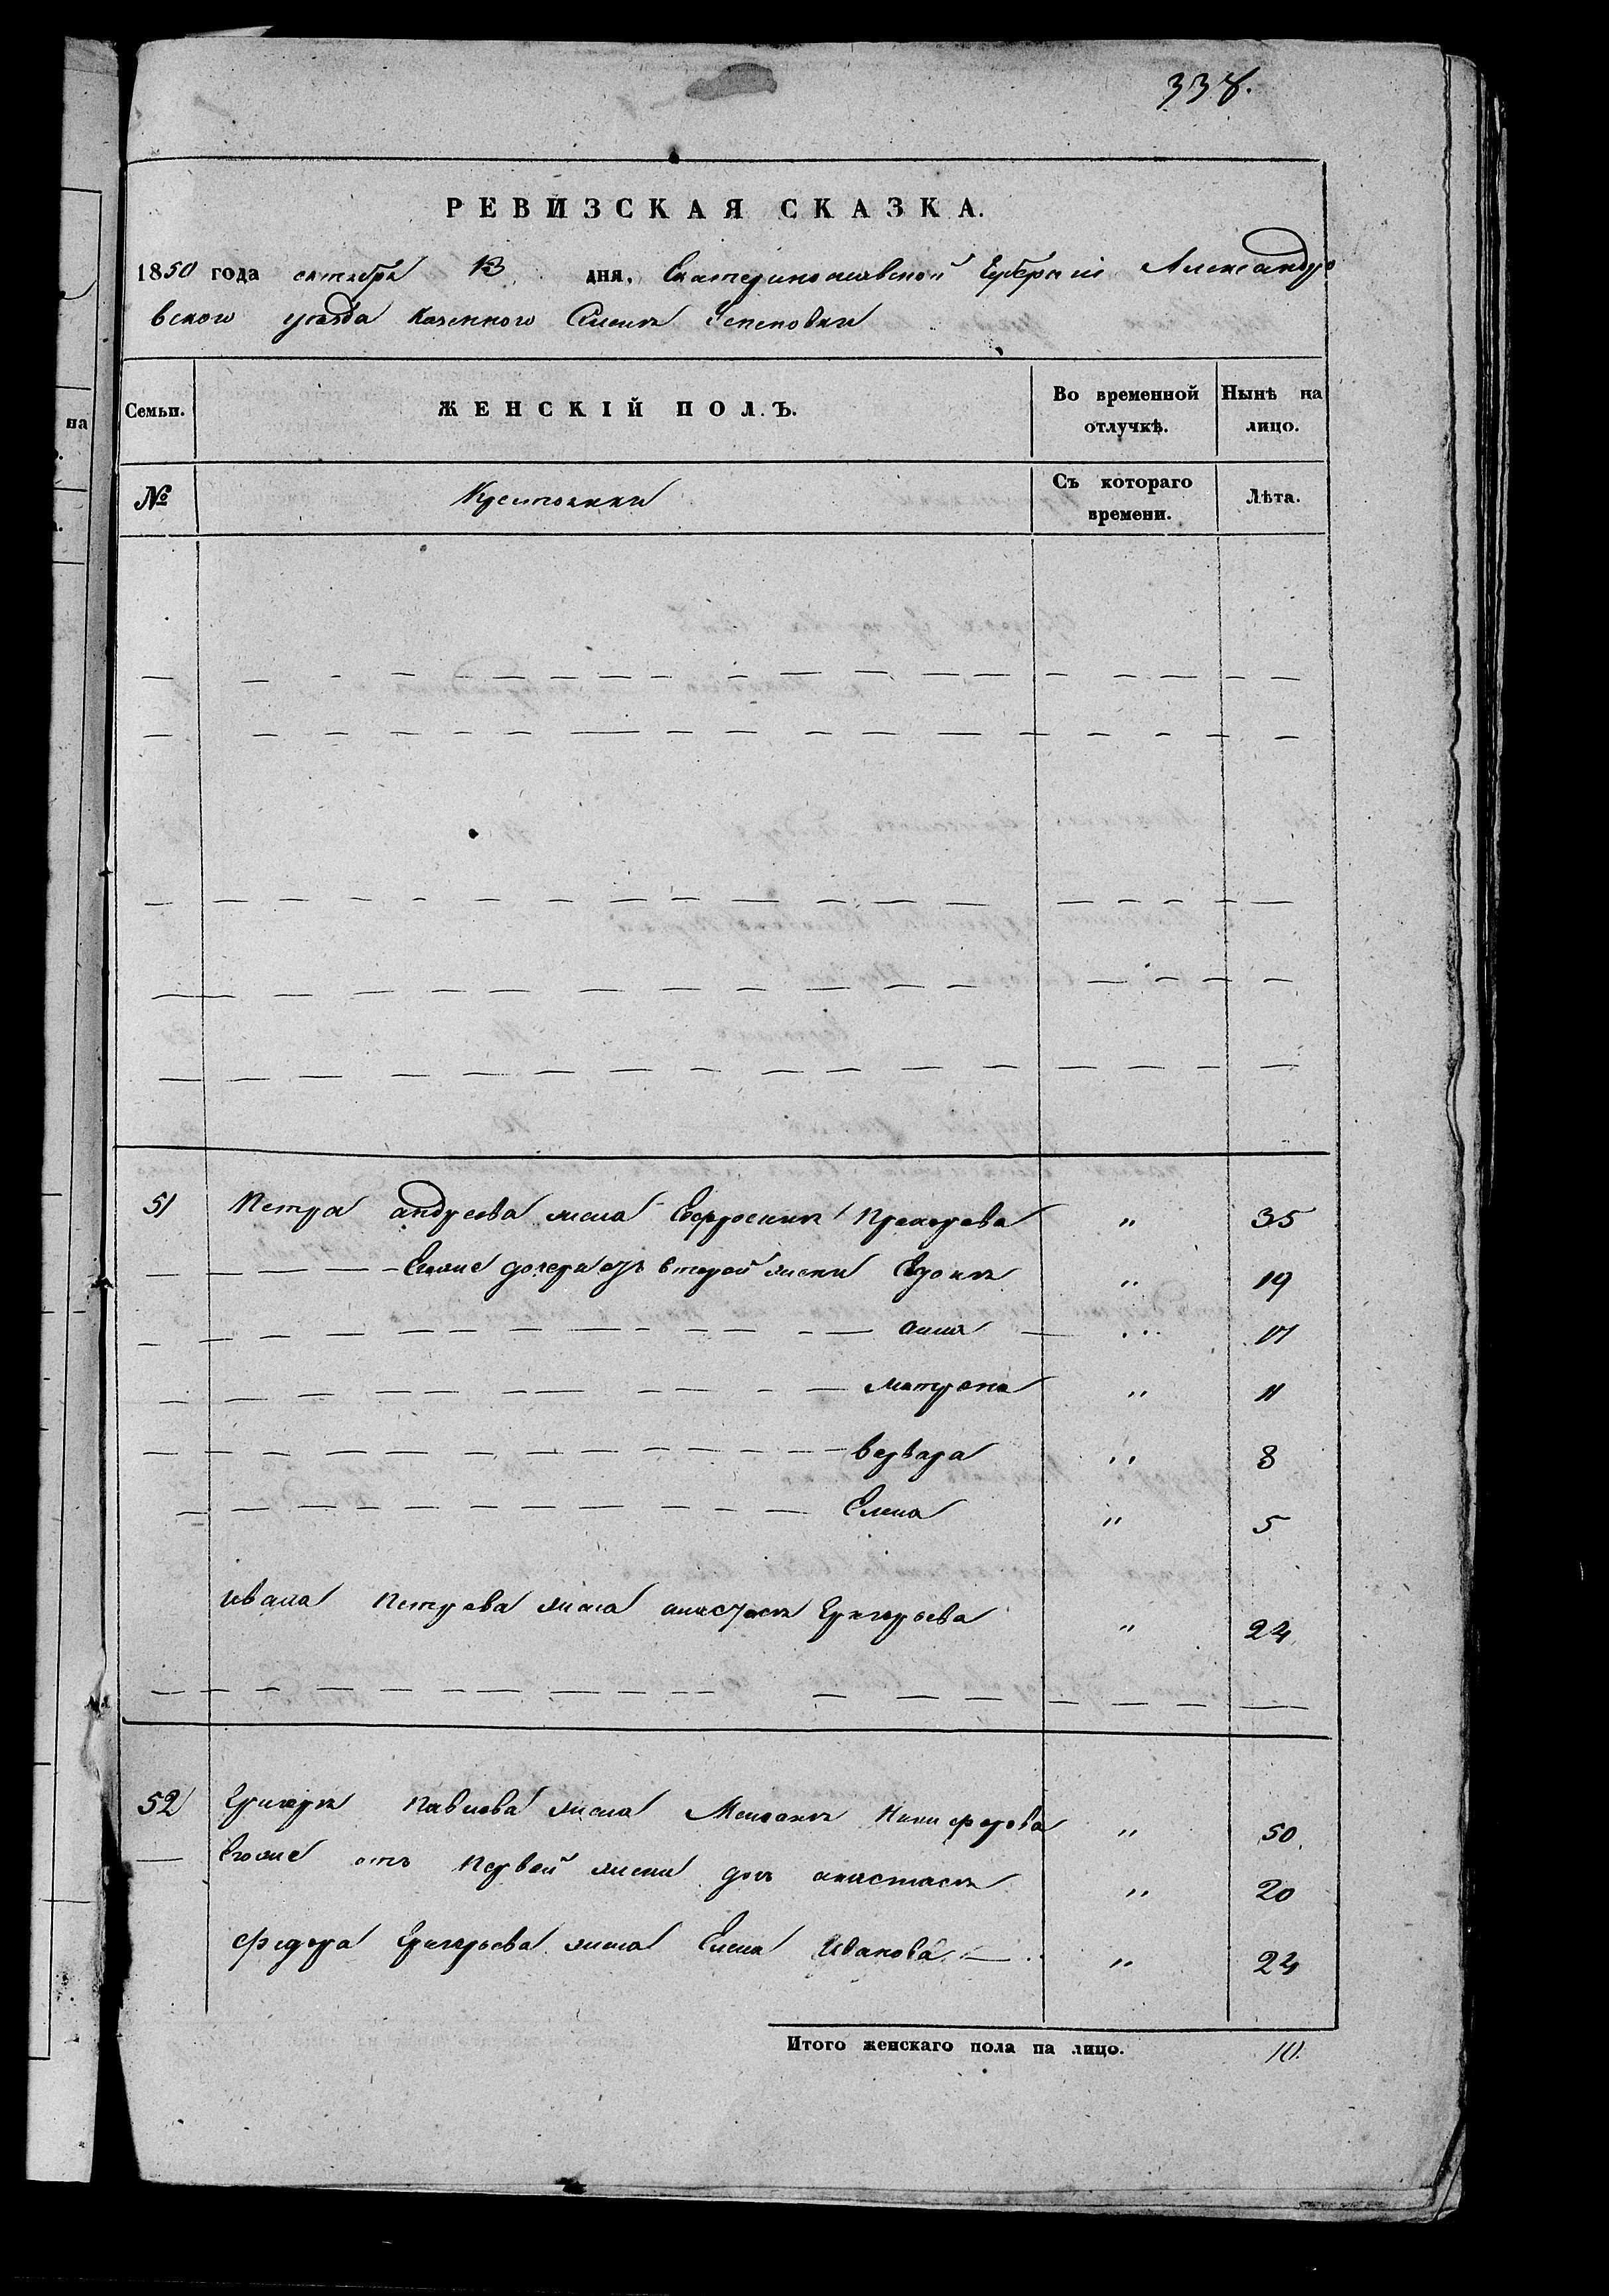 338.
РЕВИЗСКАЯ СКАЗКА.
1850 года октября 13 дня, Екатеринославской Губерніи Александро
вскаго уезда Казенного Селенія Успеновки
Семьи. ЖЕНСКІЙ ПОЛЪ. Во временной отлучкѣ. Нынѣ на лицо.
№ Крестьянки Съ котораго времени. Лѣта.
51 Петра андреева жена Ефросинія Прохорова " 35
Егоже дочери отъ второй жени " 19
анна " 17
матрона " 11
варвара " 8
Елена " 5
ивана Петрова жена анастасія Григорьева " 24
52 Григорія павлова жена Меланія Никифорова " 50
Егоже отъ Первой жени дочь анастасія " 20
федора Григорьева жена Елена Иванова " 24
Итого женскаго пола на лицо. 10.